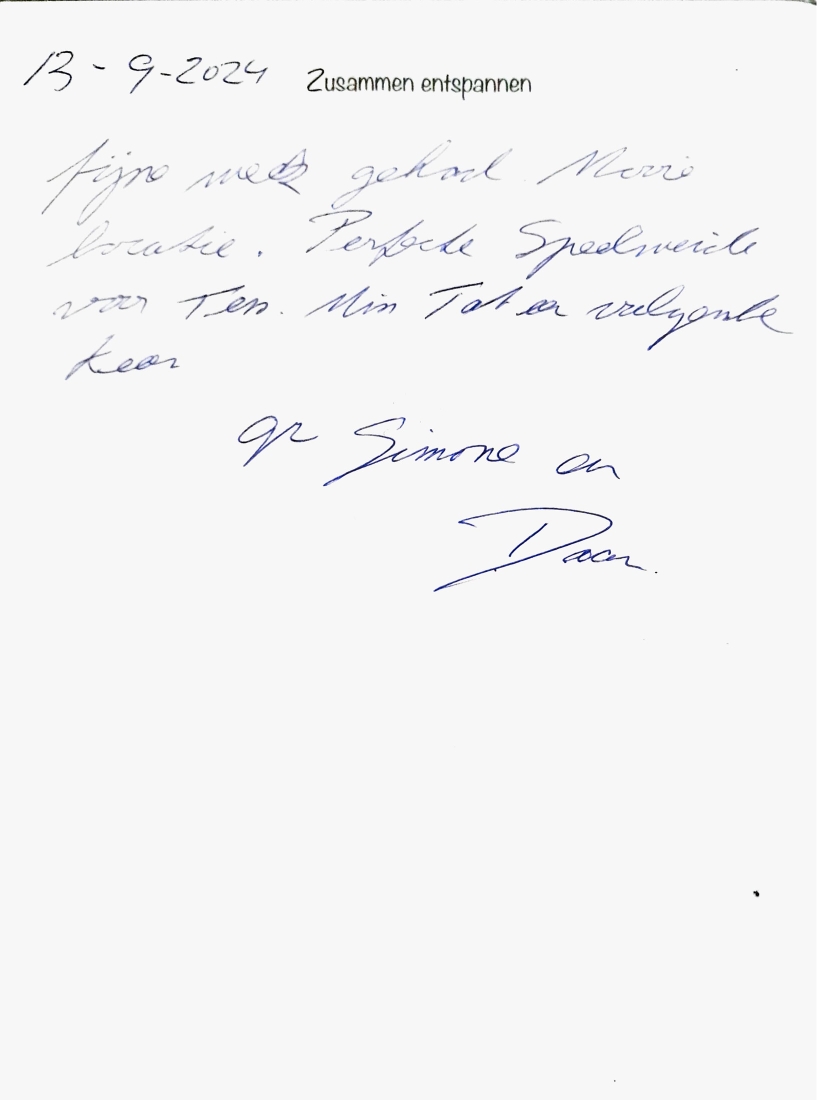 13-9-2024 Zusammen entspannen
Fijne week gehad. Mooie
locatie. Perfecte Speelweide
voor Ten. Min Tot en volgende
keer
gr Simone en
Daan.